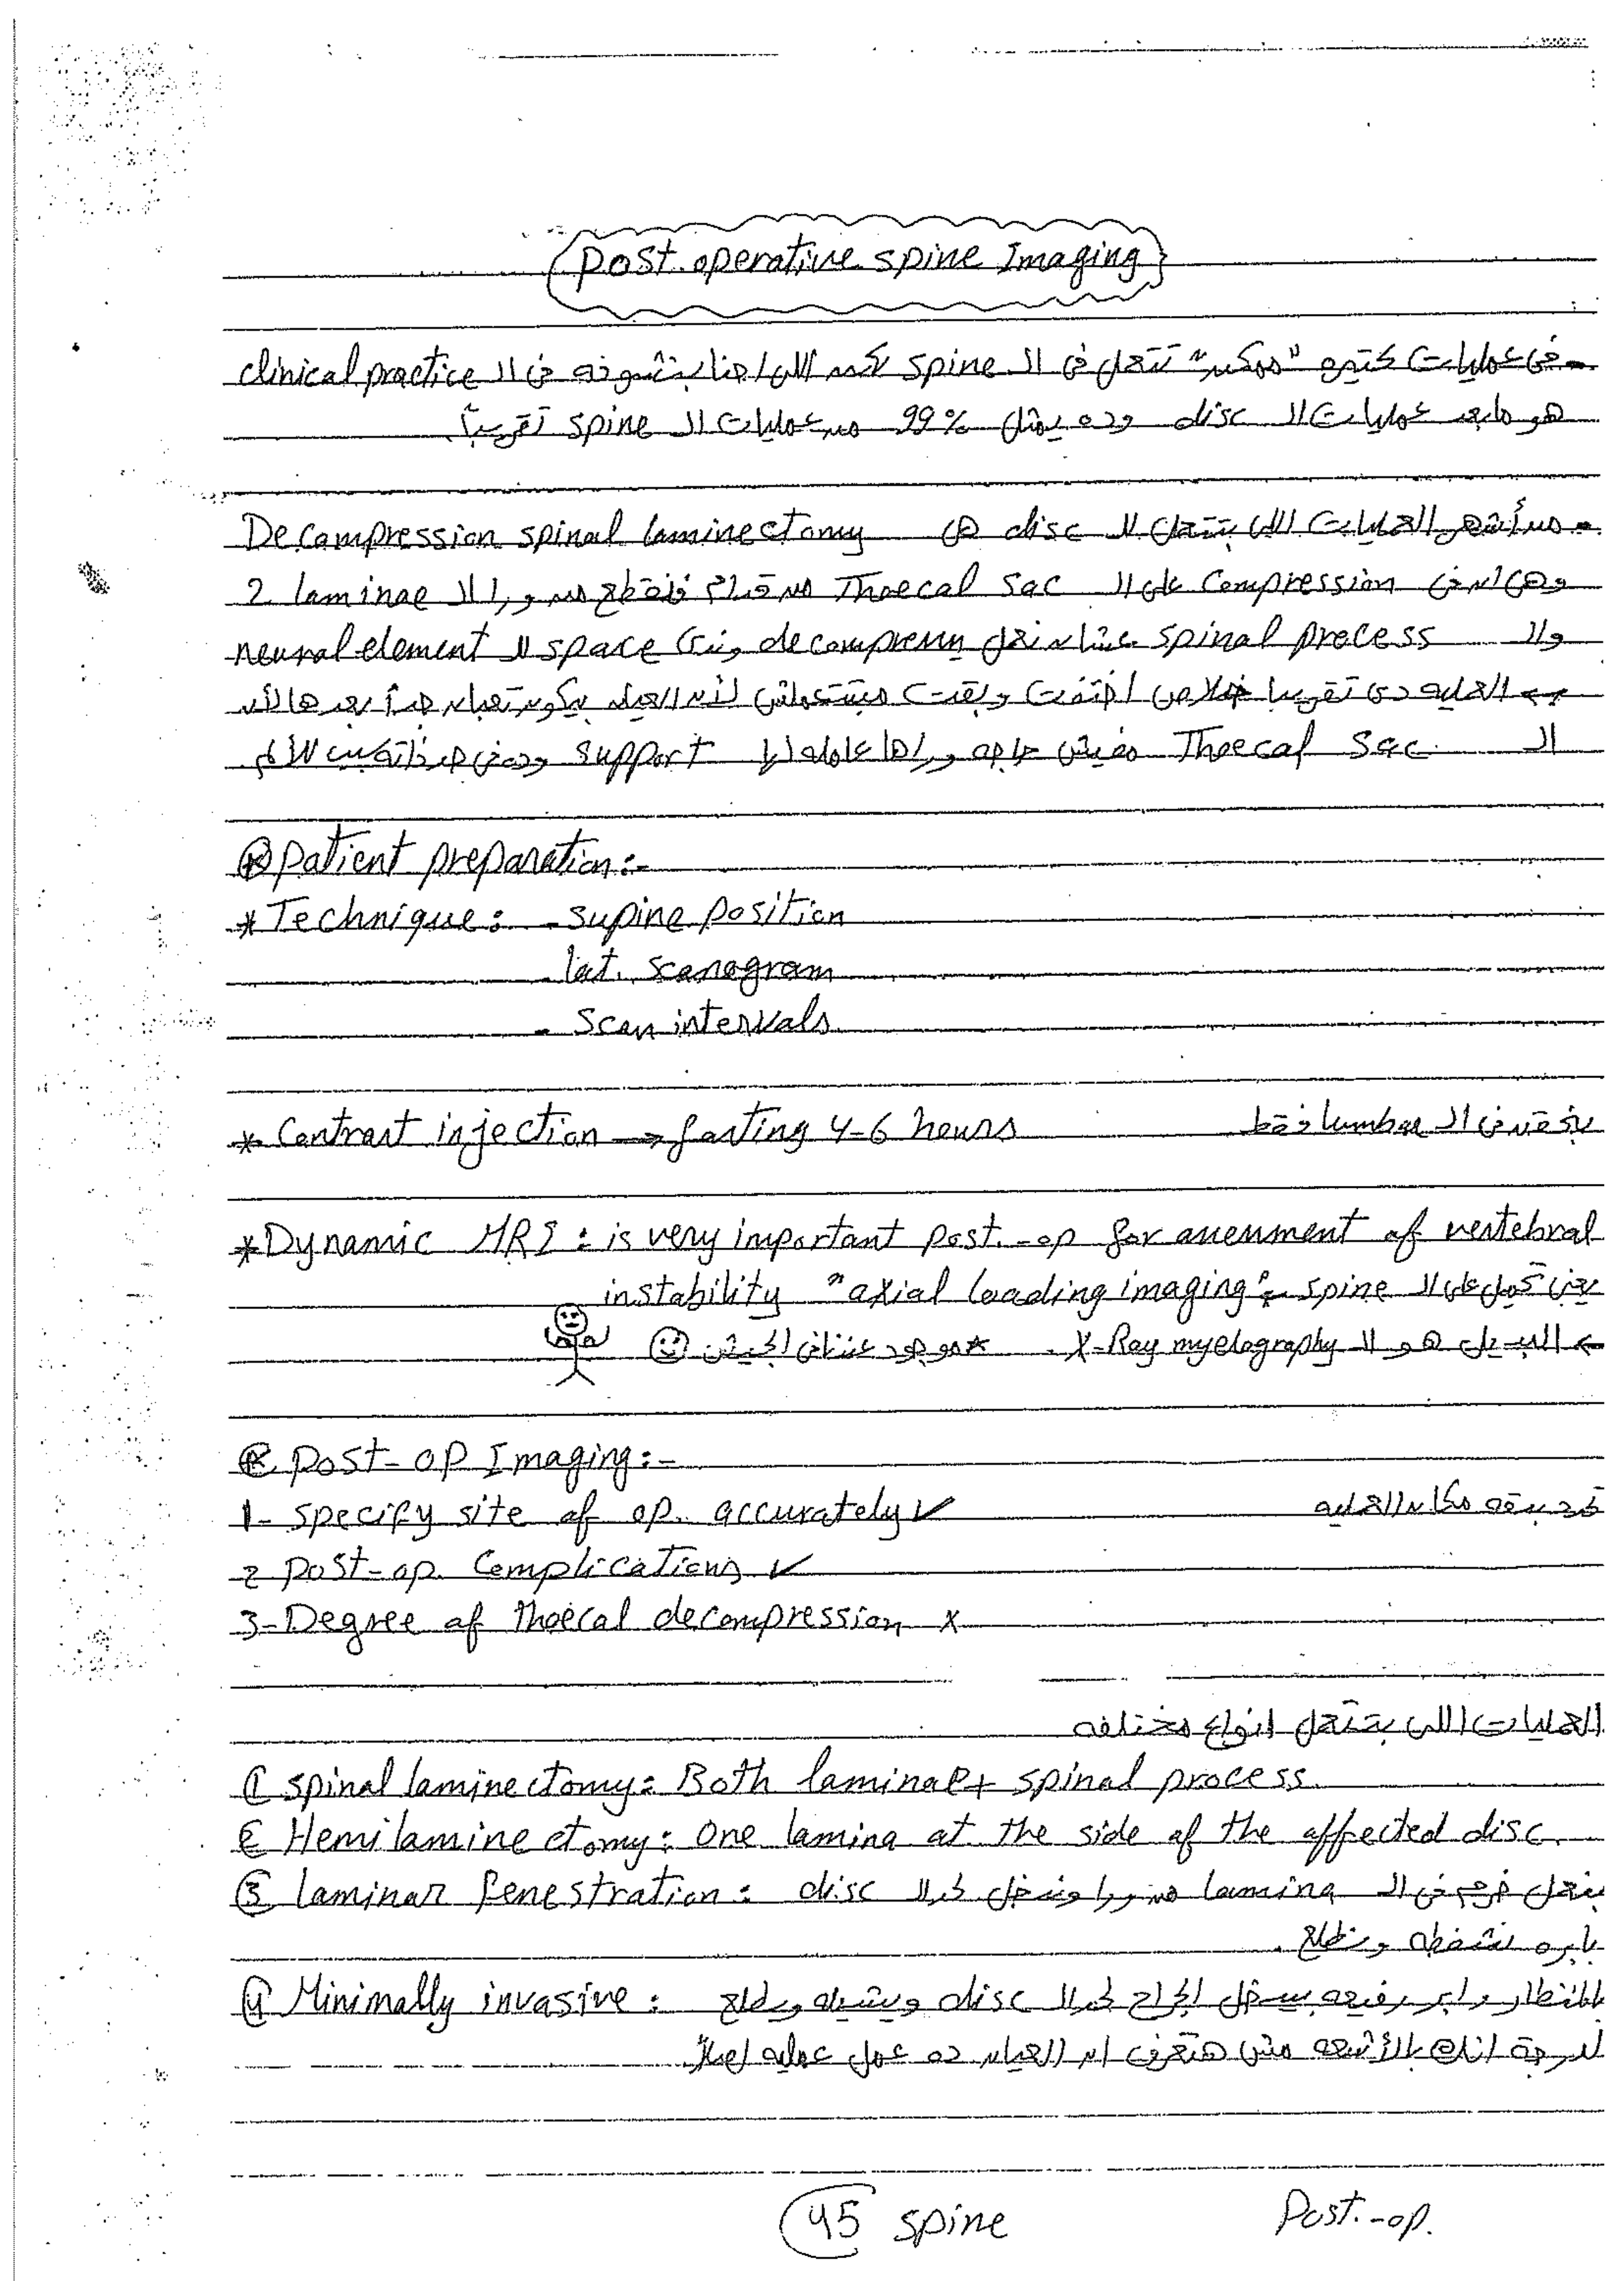 Post operative spine Imaging
- في عمليات كتير "مبكير" تتعمل في ال spine لكن اللي احنا بنشوفه في ال clinical practice
هو مابعد عمليات ال disc وده يمثل 99% من عمليات ال spine تقريباً
- من أشهر العمليات اللي بتتعمل لل disc هي Decompression spinal laminectomy
وهي ان في compression على ال Thoecal Sac من قدام فنقطع من ورا ال 2 laminae
وال spinal process عشان نعمل decompression وندي space لل neural element
العمليه دي تقريبا خلاص اختفت وبقت مبتتعملش لأن العيان بيكون تعبان جداً بعدها لأن
ال Thoecal Sac مفيش حاجه وراها عامله لها support وده في حد ذاته يسبب ألم
⊛ Patient preparation:-
* Technique: - supine position
- lat. scanogram
- Scan intervals
* Contrast injection → fasting 4-6 hours بنحقن في ال lumbar فقط
* Dynamic MRI: is very important post.-op for assessment of vertebral
instability "axial loading imaging" يعني تحميل على ال spine
← البديل هو ال X-Ray myelography. * موجود عندنا في الجيش
⊛ Post-op Imaging:-
1- specify site of op. accurately ✓ تحديد بدقه مكان العمليه
2 Post-op. Complications ✓
3- Degree of thoecal decompression x
العمليات اللي بتتعمل انواع مختلفه
① spinal laminectomy: Both laminae + spinal process
② Hemilaminectomy: One lamina at the side of the affected disc.
③ laminar fenestration: بنعمل خرم في ال lamina من ورا وندخل لحد ال disc
بابره نشفطه ونطلع.
④ Minimally invasive: بالمنظار وابر رفيعه بيدخل الجراح لحد ال disc ويشيله ويطلع
لدرجة انك بالأشعه مش هتعرف ان العيان ده عمل عمليه اصلاً
45 spine Post.-op.